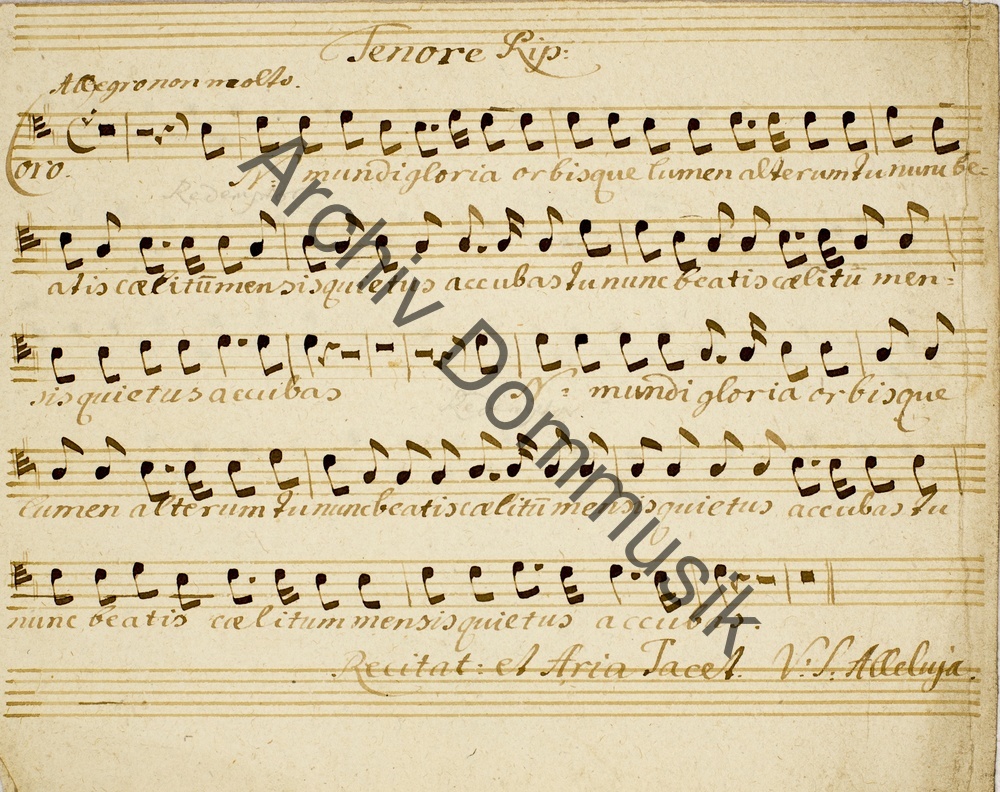 Tenore Rip:
Allegro non molto.
Coro.
N: mundi gloria orbisque lumen alterum tu nunc be=
atis cælitū mensis quietus accubas tu nunc beatis cælitū men=
sis quietus accubas N: mundi gloria orbisque
lumen alterum tu nunc beatis cælitū mensis quietus accubas tu
nunc beatis cælitum mensis quietus accubas.
Recitat: et Aria Tacet. V: S: Alleluja.
Archiv Dommusik